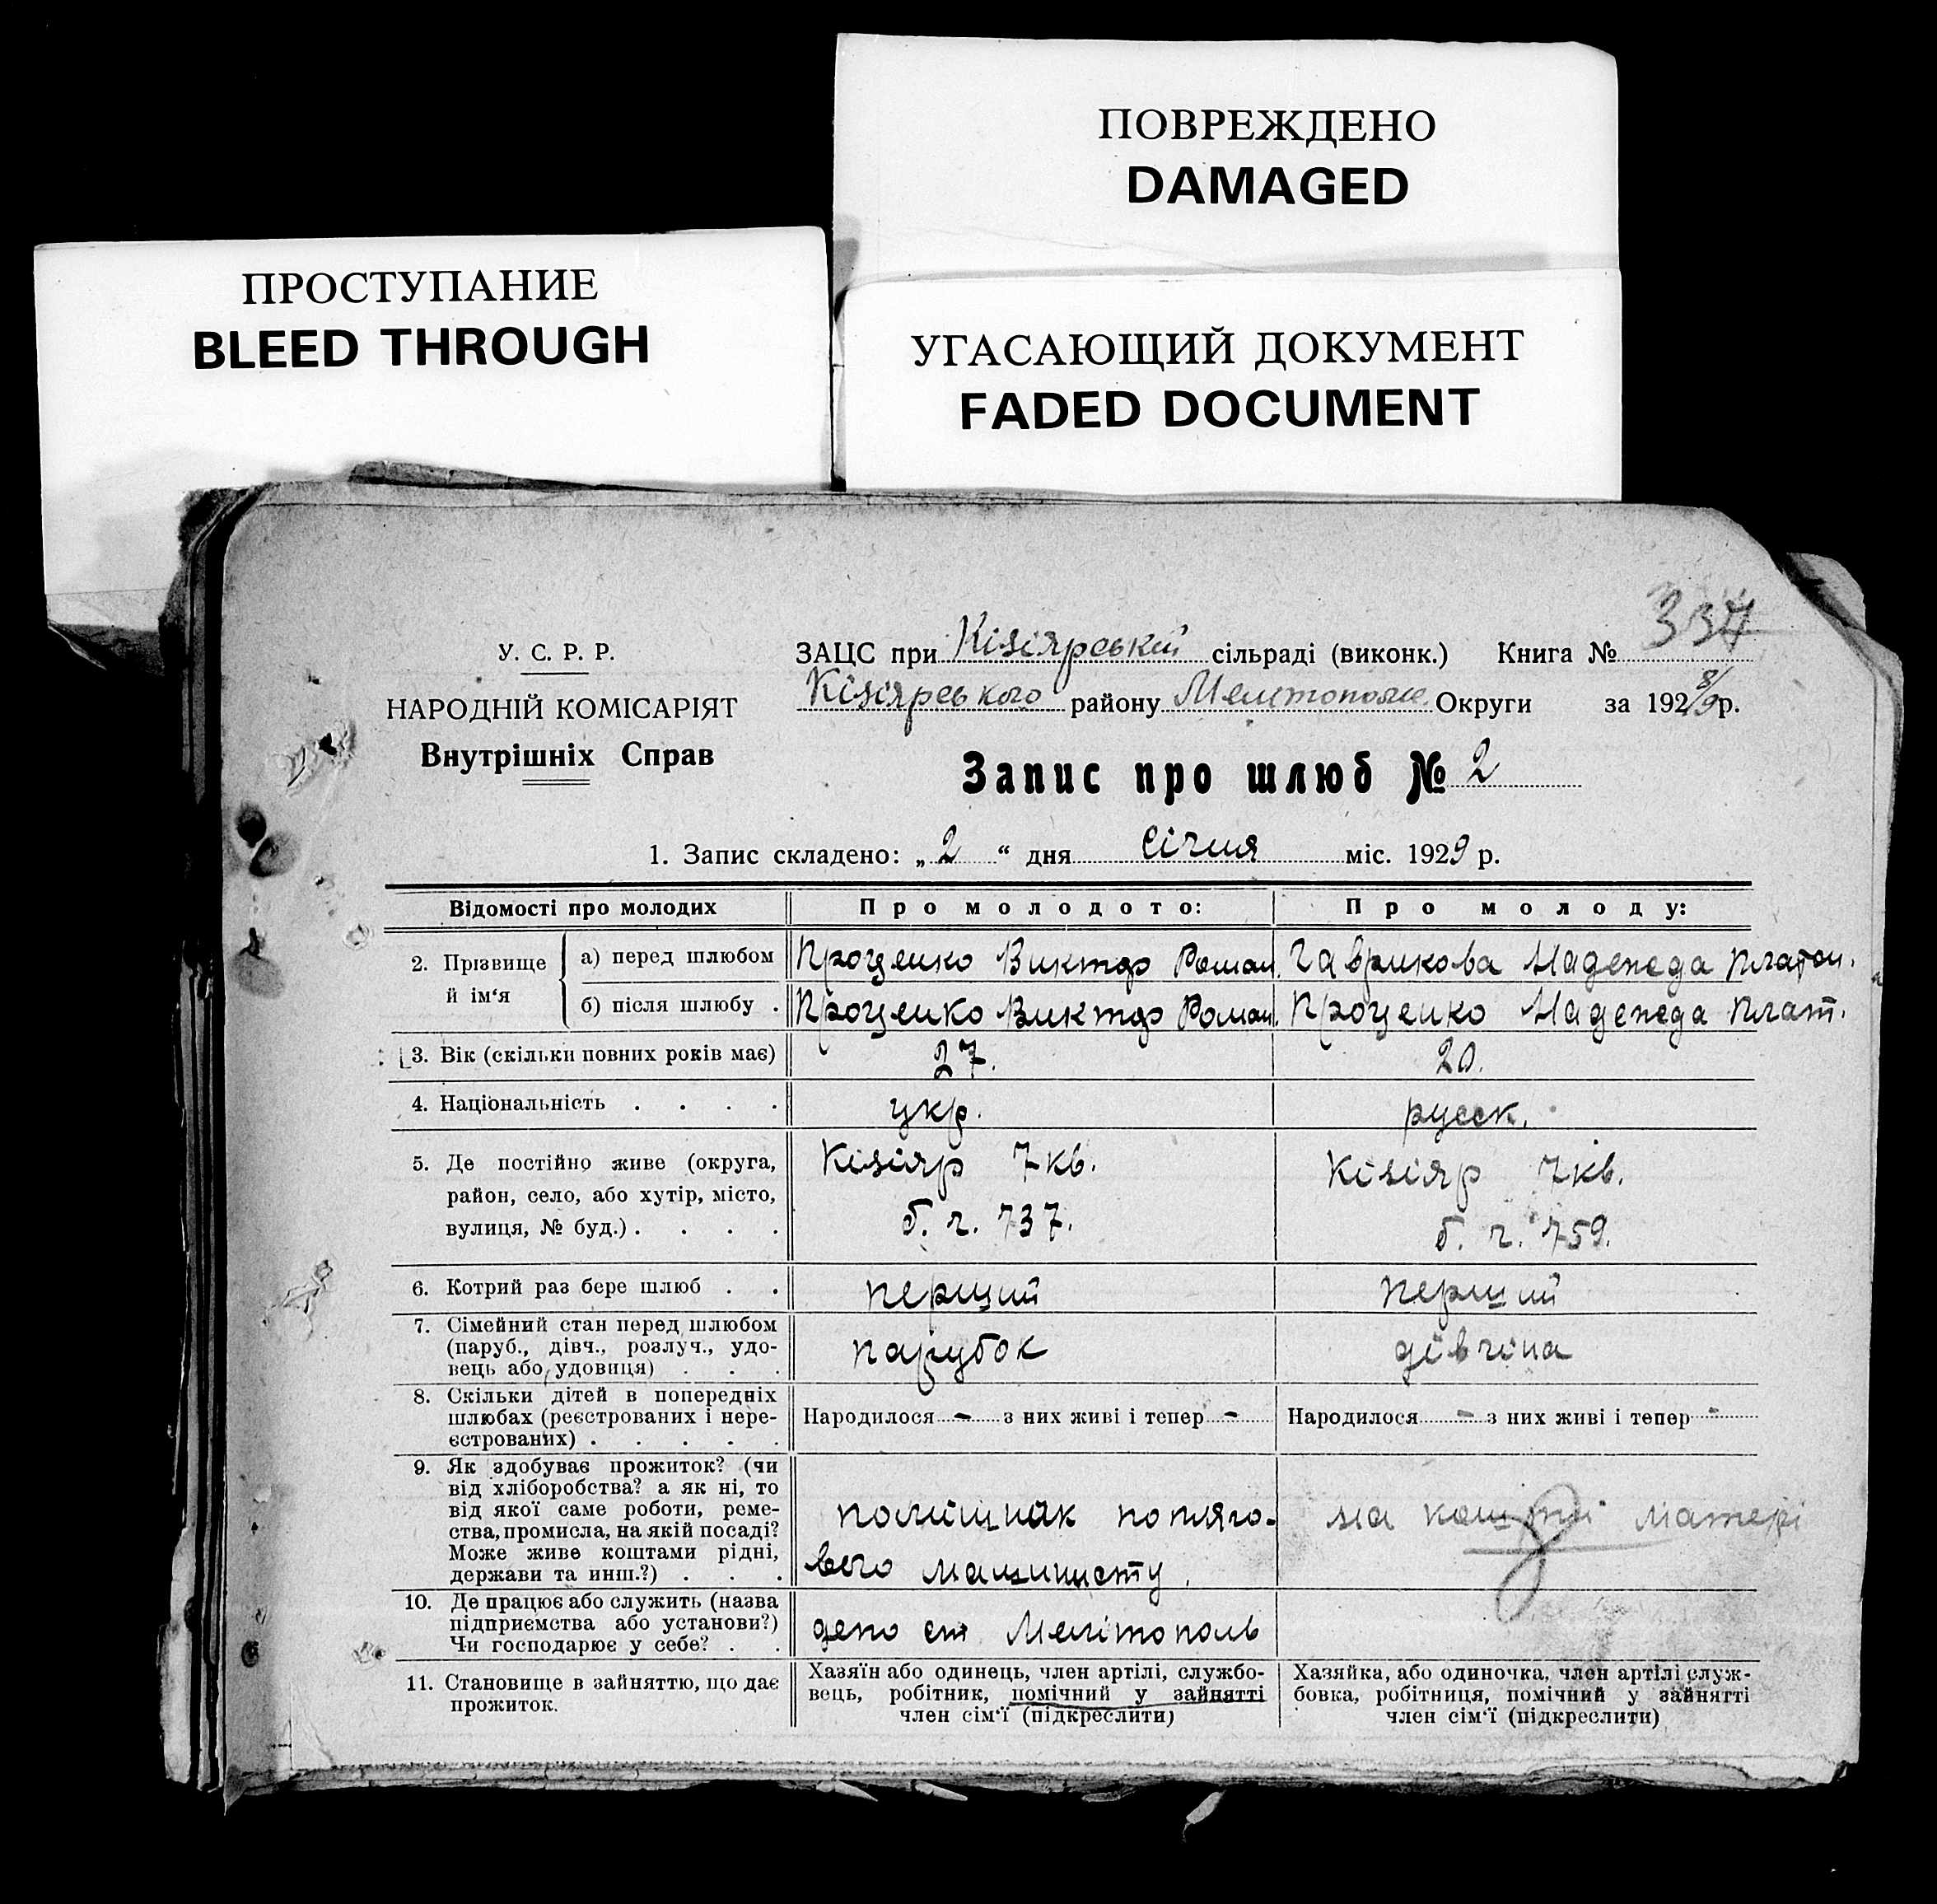 ПОВРЕЖДЕНО
DAMAGED
ПРОСТУПАНИЕ
BLEED THROUGH
УГАСАЮЩИЙ ДОКУМЕНТ
FADED DOCUMENT
337
У. С. Р. Р.
НАРОДНІЙ КОМІСАРІЯТ
Внутрішніх Справ
ЗАЦС при Кізіярській сільраді (виконк.) Книга №
Кізіярського району Мелітополь. Округи за 1928/9р.
Запис про шлюб № 2
1. Запис складено: „ 2 “ дня січня міс. 1929 р.
Відомості про молодих
Про молодото:
Про молоду:
2. Прізвище й ім‘я
а) перед шлюбом
Проценко Виктор Роман.
Гаврикова Надежда Платон.
б) після шлюбу .
Проценко Виктор Роман.
Проценко Надежда Плат.
3. Вік (скільки повних років має)
27.
20.
4. Національність . . . .
укр.
русск.
5. Де постійно живе (округа,
район, село, або хутір, місто,
вулиця, № буд.) . . . .
Кізіяр 7 кв.
б. ч. 737.
Кізіяр 7 кв.
б. ч. 759.
6. Котрий раз бере шлюб . .
перший
перший
7. Сімейний стан перед шлюбом
(паруб., дівч., розлуч., удо-
вець або удовиця) . . .
парубок
дівчина
8. Скільки дітей в попередніх
шлюбах (реєстрованих і нере-
єстрованих) . . . . .
Народилося - з них живі і тепер -
Народилося - з них живі і тепер -
9. Як здобуває прожиток? (чи
від хліборобства? а як ні, то
від якої саме роботи, реме-
ства, промисла, на якій посаді?
Може живе коштами рідні,
держави та инш.?) . . .
помішник потяго-
вого машинисту.
на кошти матері
10. Де працює або служить (назва
підприємства або установи?)
Чи господарює у себе? . .
депо ст Мелітополь
11. Становище в зайняттю, що дає
прожиток.
Хазяїн або одинець, член артілі, службо-
вець, робітник, помічний у зайнятті
член сім‘ї (підкреслити)
Хазяйка, або одиночка, член артілі служ-
бовка, робітниця, помічний у зайнятті
член сім‘ї (підкреслити)